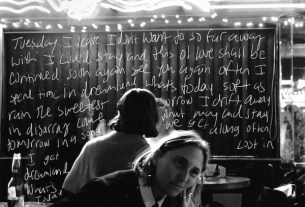 Tuesday I leave I don't want to go so far away
wish I could stay and this of love shall be
continued soon again see again often I
spend time in dreamland what's today soft as
rain the sweetest orrow I drift away
in disarray come what may and stay
tomorrow in a so we get along often
I get Lost in
dreamland
What's